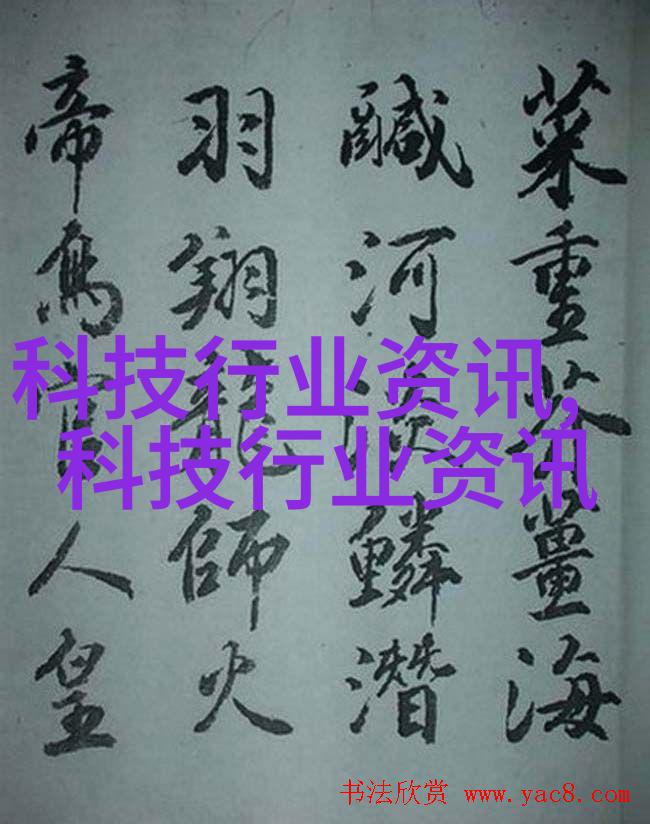 菜重芥薑海
鹹河淡鱗潛
羽翔龍師火
帝鳥官人皇
科技行业资讯,
科技行业资讯
书法欣赏 www.yac8.com